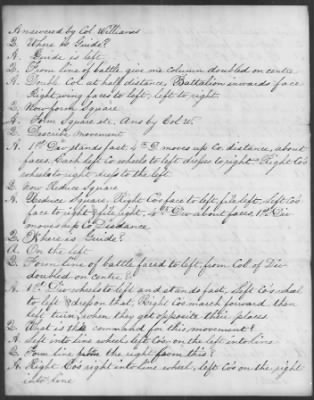 Answered by Col. Williams
Q. Where is Guide?
A. Guide is left
Q. From line of battle give me column doubled on centre
A. Double Col. at half distance, Battalion inwards face
Right wing faces to left, left to right
Q. Now form Square
A. Form Square etc. Ans by Col W.
Q. Describe movement
A. 1st Div stands fast, 4th D. moves up Co. distance, about
faces. Each left Co wheels to left dresses to right. Right Co's
wheels to right dress to the left
Q. Now Reduce Square
A. Reduce Square. Right Co's face to left, file left. Left Co's
face to right & file right, 4th Div about faces 1st Div
moves up Co Distance
Q. Where is Guide?
A. On the left
Q. Form line of battle faced to left, from Col. of Div
doubled on centre?
A. 1st Div wheels to left and stands fast, left Co's wheel
to left & dress on that, Right Co's march forward then
left turn, when they get opposite their places
Q. What is the command for this movement?
A. Left into line wheel, left Co's on the left into line
Q. Form line from the right from this?
A. Right Co's right into line wheel, left Co's on the right
into line